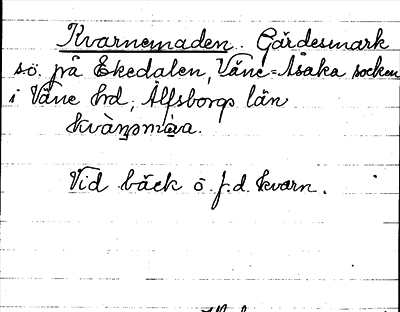 Kvarnemaden. Gärdesmark
sö. på Ekedalen, Väne-Åsaka socken
i Väne hrd, Älfsborgs län
Vid bäck ö. f.d. kvarn.